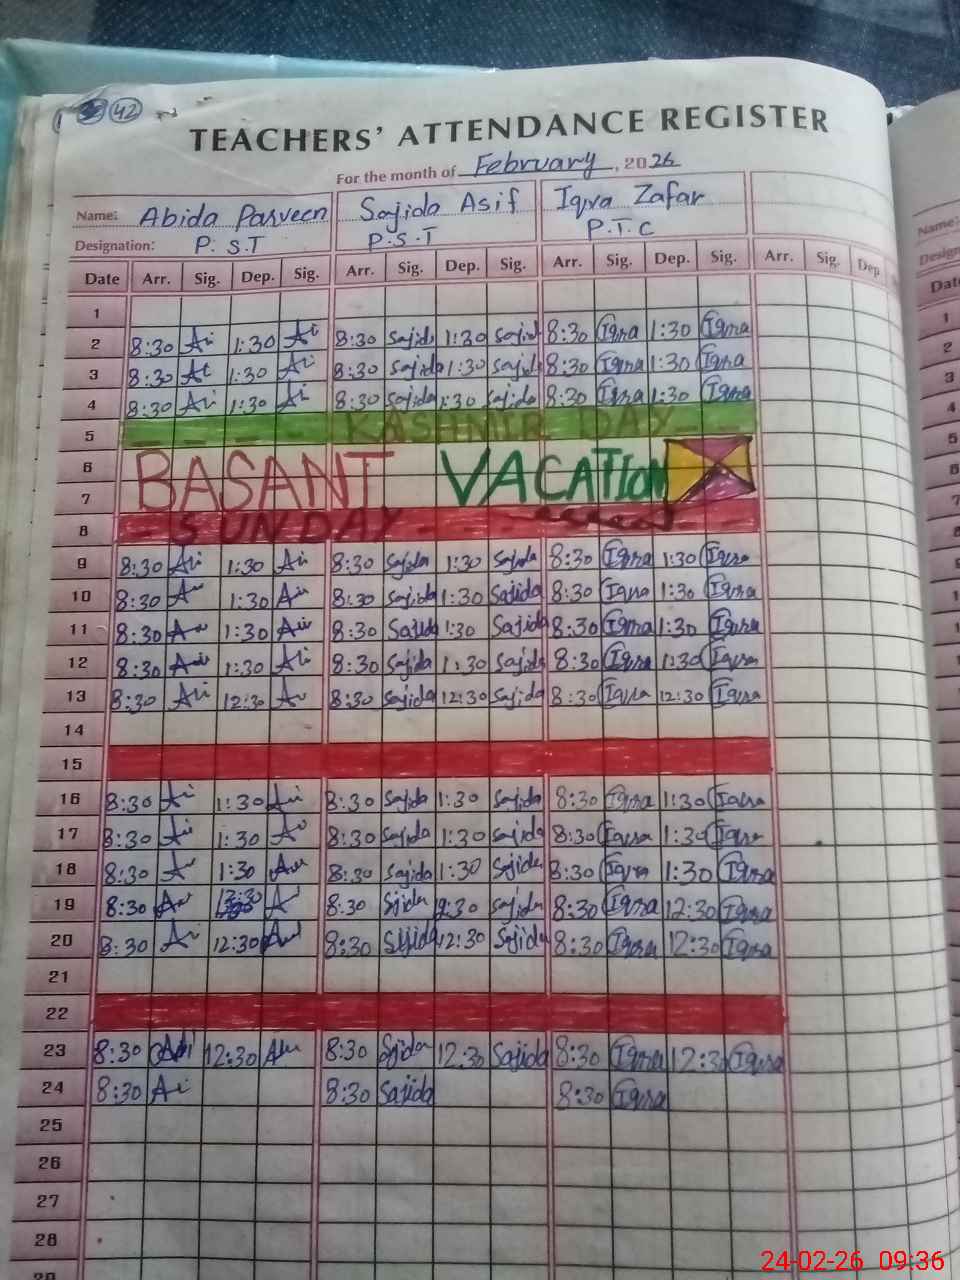 42
TEACHERS' ATTENDANCE REGISTER
For the month of February, 2026
Name: Abida Parveen Sajida Asif Iqra Zafar
Designation: P.S.T P.S.T P.T.C
Date Arr. Sig. Dep. Sig. Arr. Sig. Dep. Sig. Arr. Sig. Dep. Sig. Arr. Sig. Dep.
1
2 8:30 1:30 8:30 Sajida 1:30 Sajida 8:30 Iqra 1:30 Iqra
3 8:30 1:30 8:30 Sajida 1:30 Sajida 8:30 Iqra 1:30 Iqra
4 8:30 1:30 8:30 Sajida 1:30 Sajida 8:30 Iqra 1:30 Iqra
5 KASHMIR DAY
6 BASANT VACATION
7
8 SUNDAY
9 8:30 1:30 8:30 Sajida 1:30 Sajida 8:30 Iqra 1:30 Iqra
10 8:30 1:30 8:30 Sajida 1:30 Sajida 8:30 Iqra 1:30 Iqra
11 8:30 1:30 8:30 Sajida 1:30 Sajida 8:30 Iqra 1:30 Iqra
12 8:30 1:30 8:30 Sajida 1:30 Sajida 8:30 Iqra 1:30 Iqra
13 8:30 12:30 8:30 Sajida 12:30 Sajida 8:30 Iqra 12:30 Iqra
14
15
16 8:30 1:30 8:30 Sajida 1:30 Sajida 8:30 Iqra 1:30 Iqra
17 8:30 1:30 8:30 Sajida 1:30 Sajida 8:30 Iqra 1:30 Iqra
18 8:30 1:30 8:30 Sajida 1:30 Sajida 8:30 Iqra 1:30 Iqra
19 8:30 8:30 Sajida Sajida 8:30 Iqra 12:30 Iqra
20 8:30 12:30 8:30 Sajida 12:30 Sajida 8:30 Iqra 12:30 Iqra
21
22
23 8:30 12:30 8:30 Sajida 12:30 Sajida 8:30 Iqra 12:30 Iqra
24 8:30 8:30 Sajida 8:30 Iqra
25
26
27
28
24-02-26 09:36